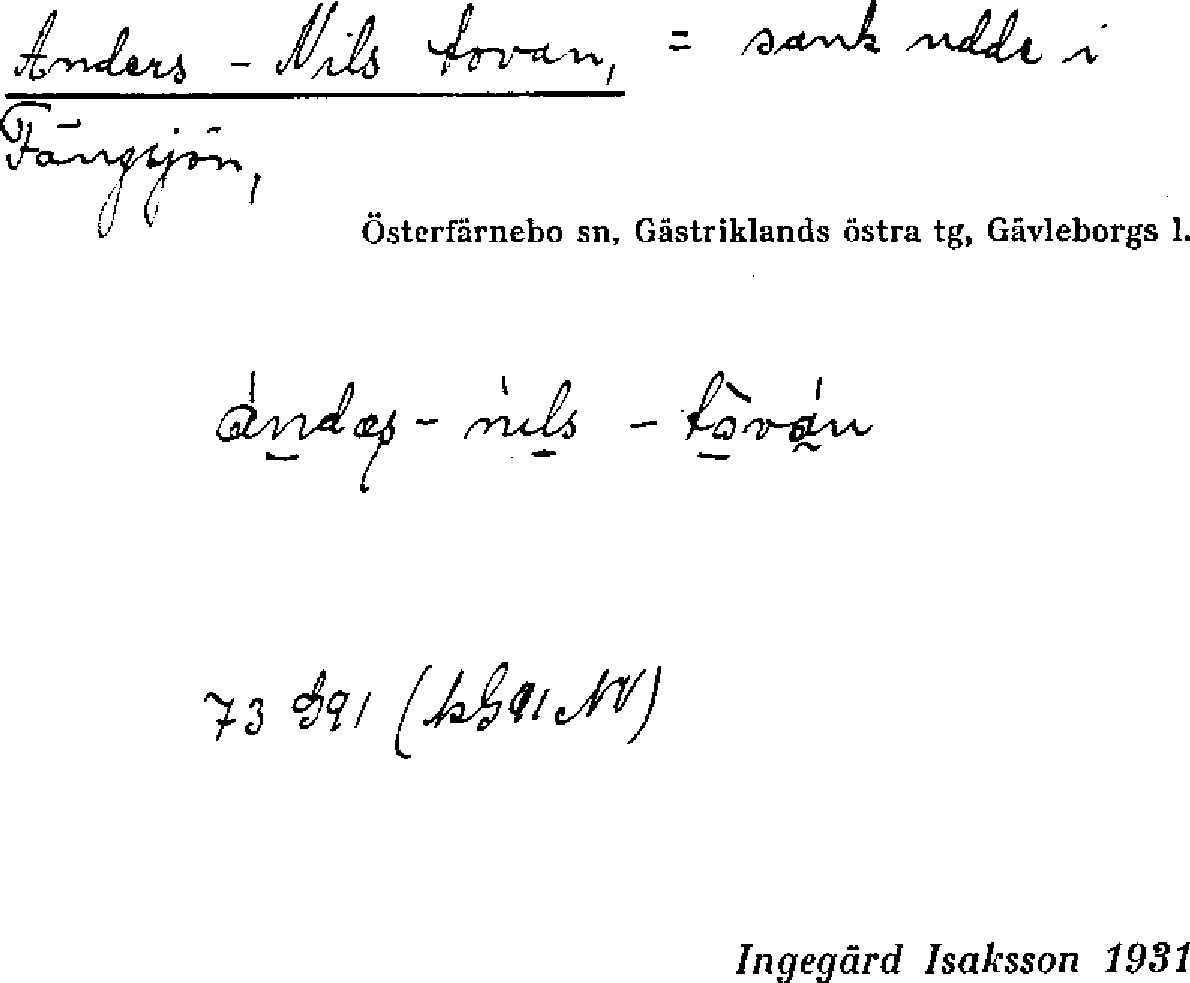 Anders - Nils tovan, = sank udde i
Fängsjön,
Österfärnebo sn, Gästriklands östra tg, Gävleborgs l.
ándæs - nils - tòván
73 G91 (bG91 NV)
Ingegärd Isaksson 1931